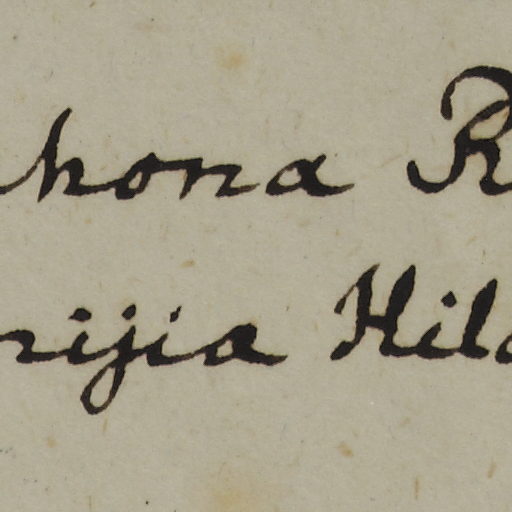 hona R
rijia Hila